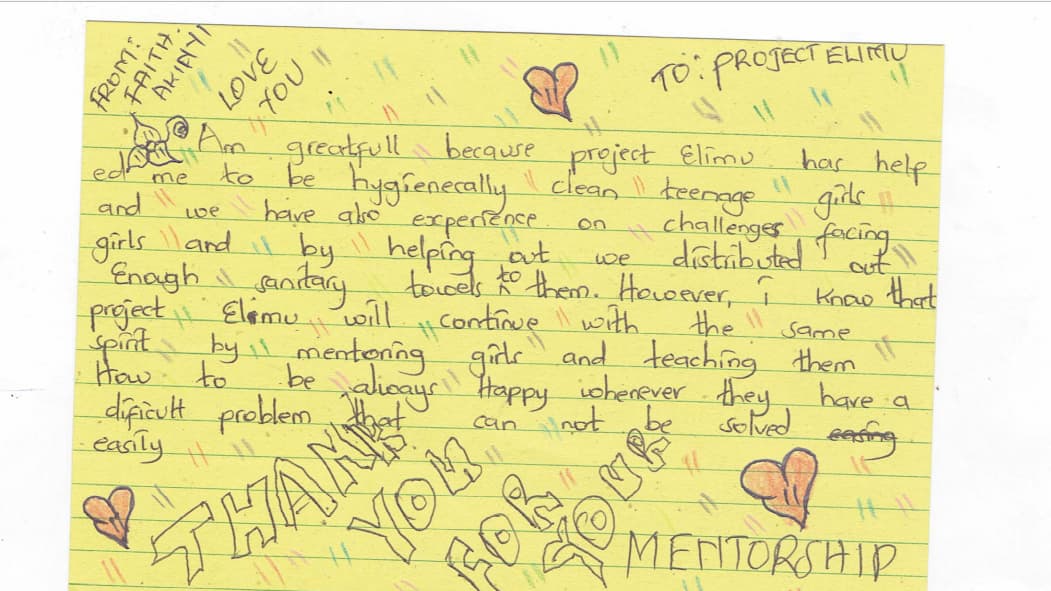 FROM:
FAITH.
AKINYI
LOVE
YOU
TO: PROJECT ELIMU
Am greatfull because project Elimu has help
ed me to be hygienecally clean teenage girls
and we have also experience on challenges facing
girls and by helping out we distributed out
Enough sanitary towels to them. However, i know that
project Elimu will continue with the same
spirit by mentoring girls and teaching them
How to be always Happy whenever they have a
dificult problem that can not be solved easing
easily
THANK
YOU
FOR
YOUR
MENTORSHIP